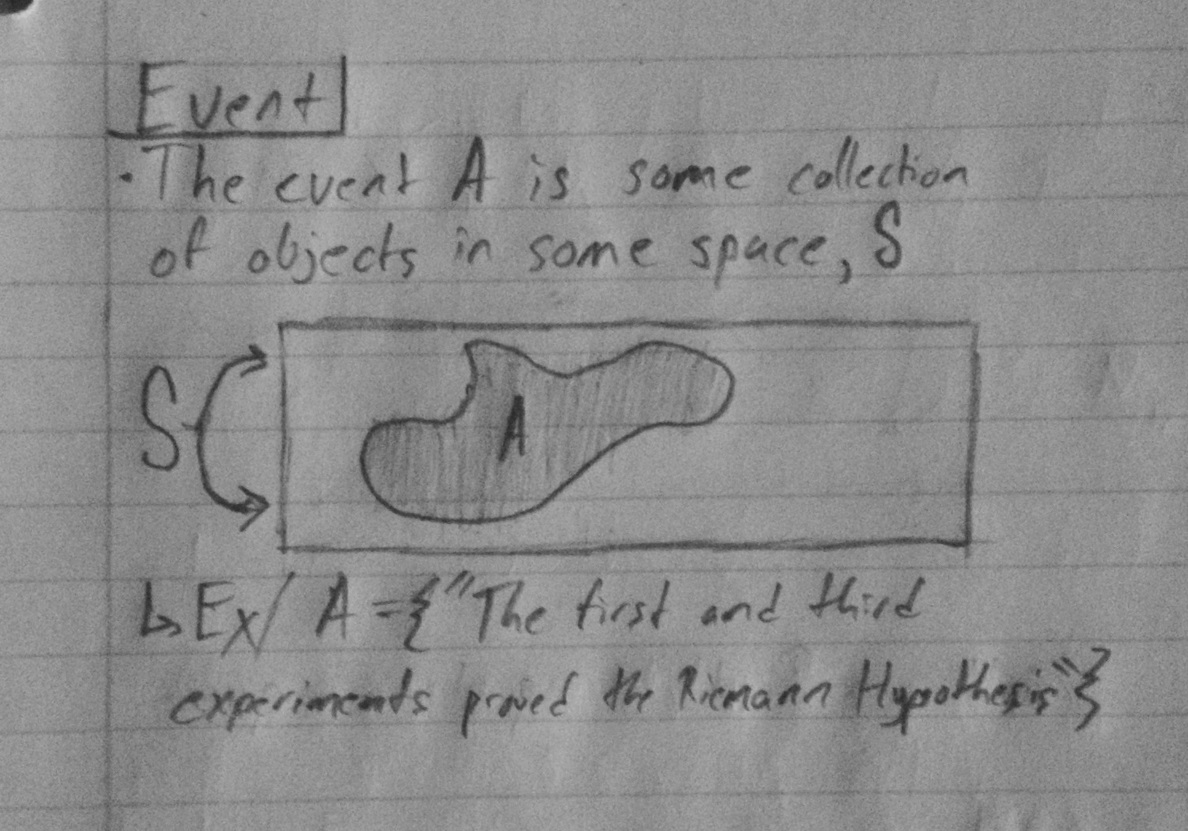 Event
· The event A is some collection
of objects in some space, S
S
A
↳ Ex/ A = {"The first and third
experiments proved the Riemann Hypothesis"}